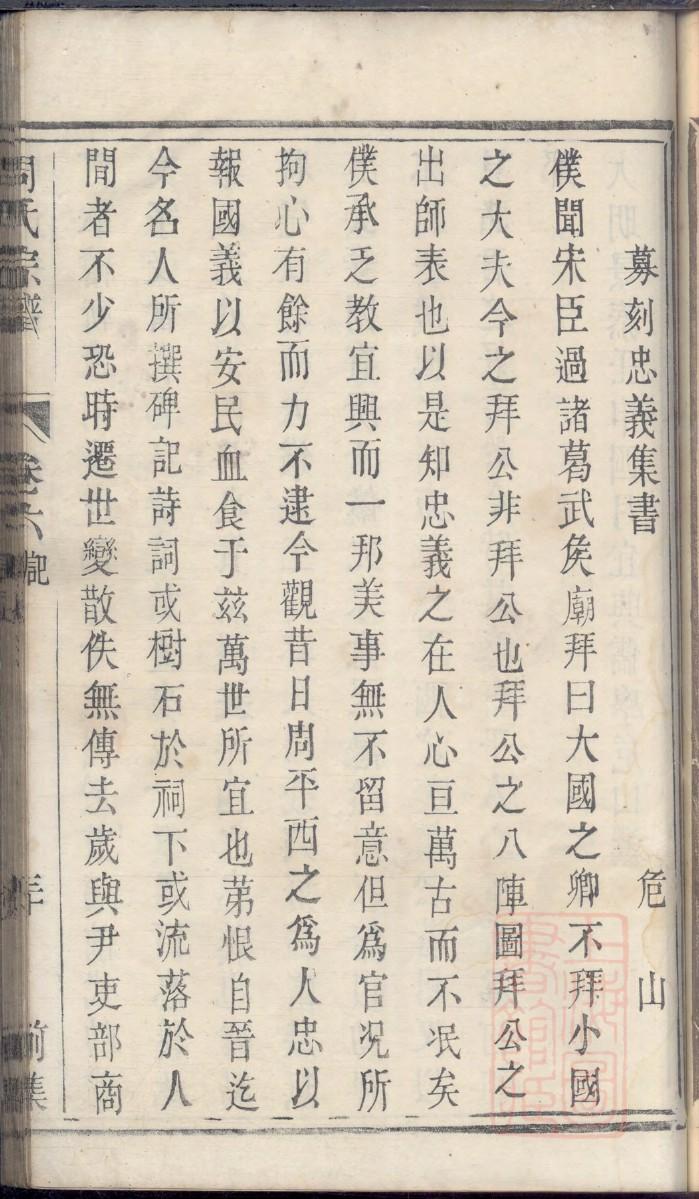 募刻忠義集書 危山
僕聞宋臣過諸葛武侯廟拜曰大國之卿不拜小國
之大夫今之拜公非拜公也拜公之八陣圖拜公之
出師表也以是知忠義之在人心亘萬古而不泯矣
僕承乏教宜興而一邦美事無不留意但為官况所
拘心有餘而力不逮今觀昔日周平西之為人忠以
報國義以安民血食于兹萬世所宜也苐恨自晉迄
今名人所撰碑記詩詞或樹石於祠下或流落於人
間者不少恐時遷世變散佚無傳去歲與尹吏部商
周氏宗譜 卷六 記 前集